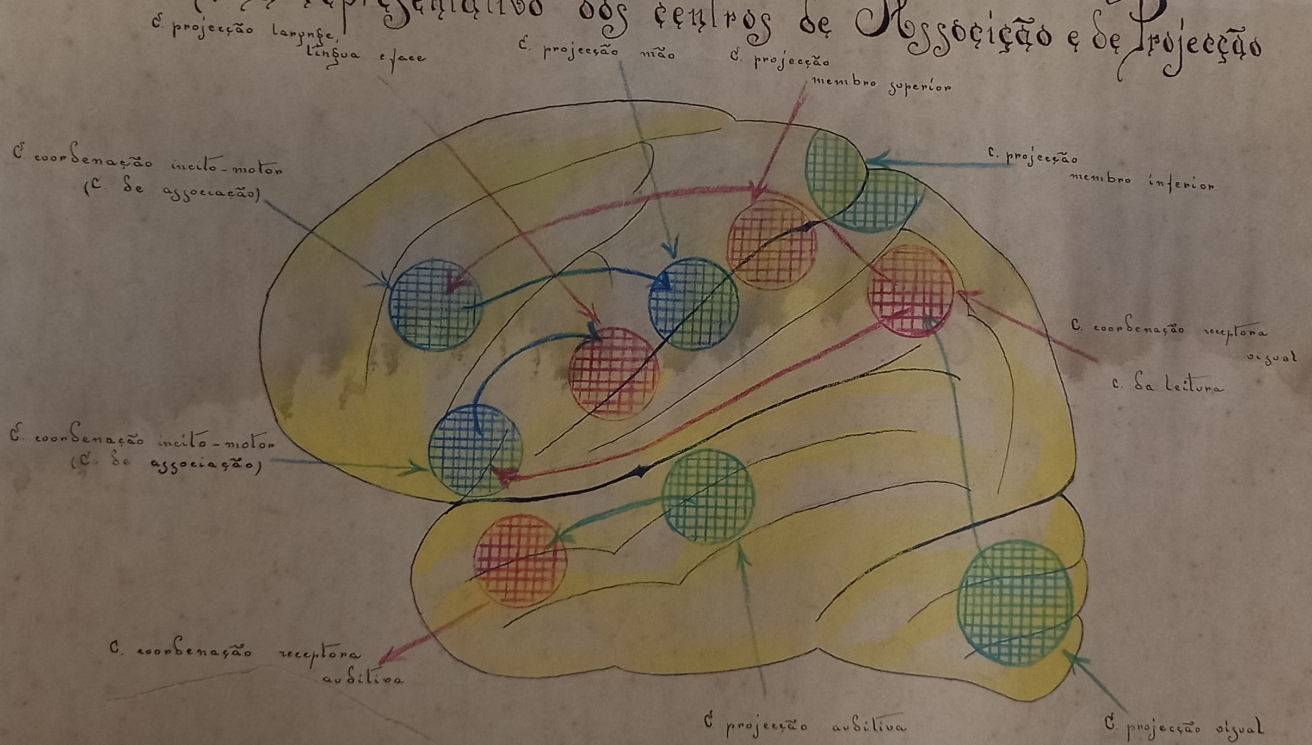 representativo dos centros de Associação e de Projecção
C. projecção larynge,
lingua e face
C. projecção mão
C. projecção
membro superior
C. projecção
membro inferior
C. coordenação incito-motor
(C. de associação)
C. coordenação receptora
visual
C. da leitura
C. coordenação incito-motor
(C. de associação)
C. coordenação receptora
auditiva
C. projecção auditiva
C. projecção visual